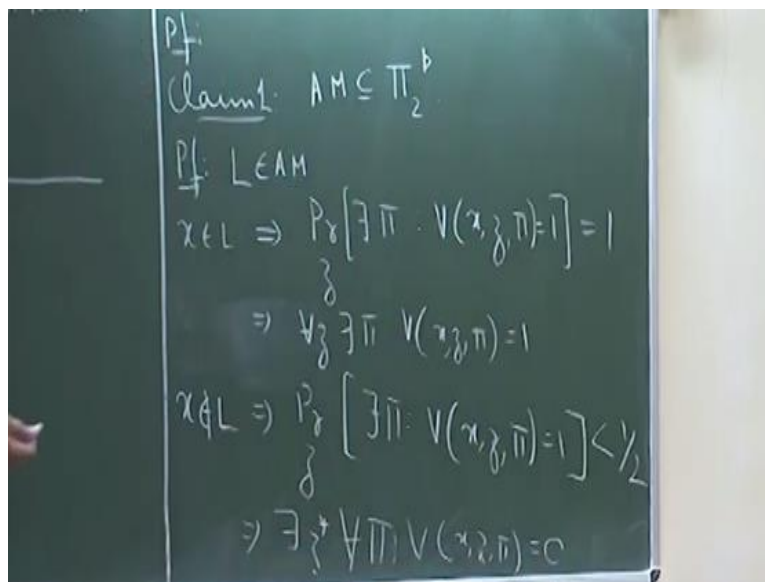 Pf:
Claim1: AM ⊆ Π₂ᵖ
Pf: L∈AM
x∈L ⇒ Pr[∃Π : V(x,z,Π)=1] = 1
z
⇒ ∀z ∃Π V(x,z,Π)=1
x∉L ⇒ Pr[∃Π: V(x,z,Π)=1] < 1/2
z
⇒ ∃z* ∀Π, V(x,z,Π)=0